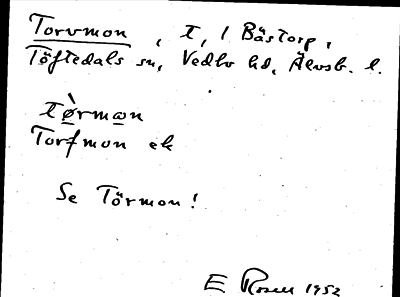 Torvmon, t, i Bästorp,
Töftedals sn, Vedbo hd, Älvsb. l.
tø̀rmɑn
Torfmon ek
Se Törmon!
E Rosell 1952